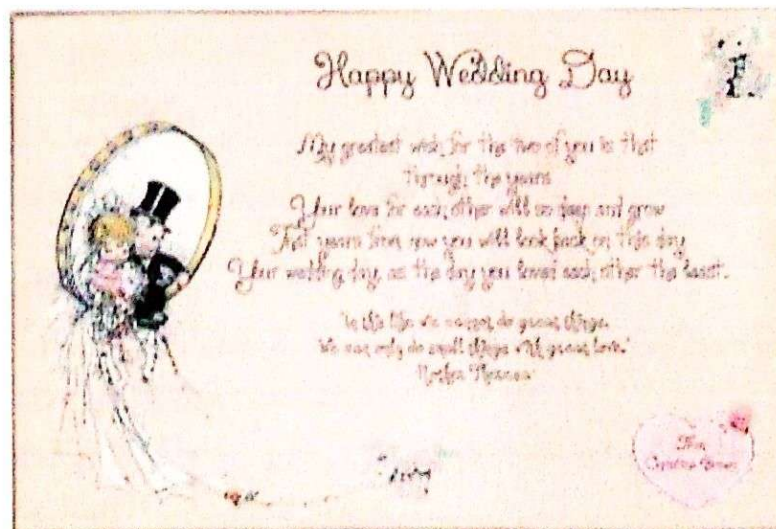 Happy Wedding Day
My greatest wish for the two of you is that
through the years
Your love for each other will so deep and grow
That years from now you will look back on this day
Your wedding day, as the day you loved each other the least.
"In this life we cannot do great things.
We can only do small things with great love."
Mother Theresa